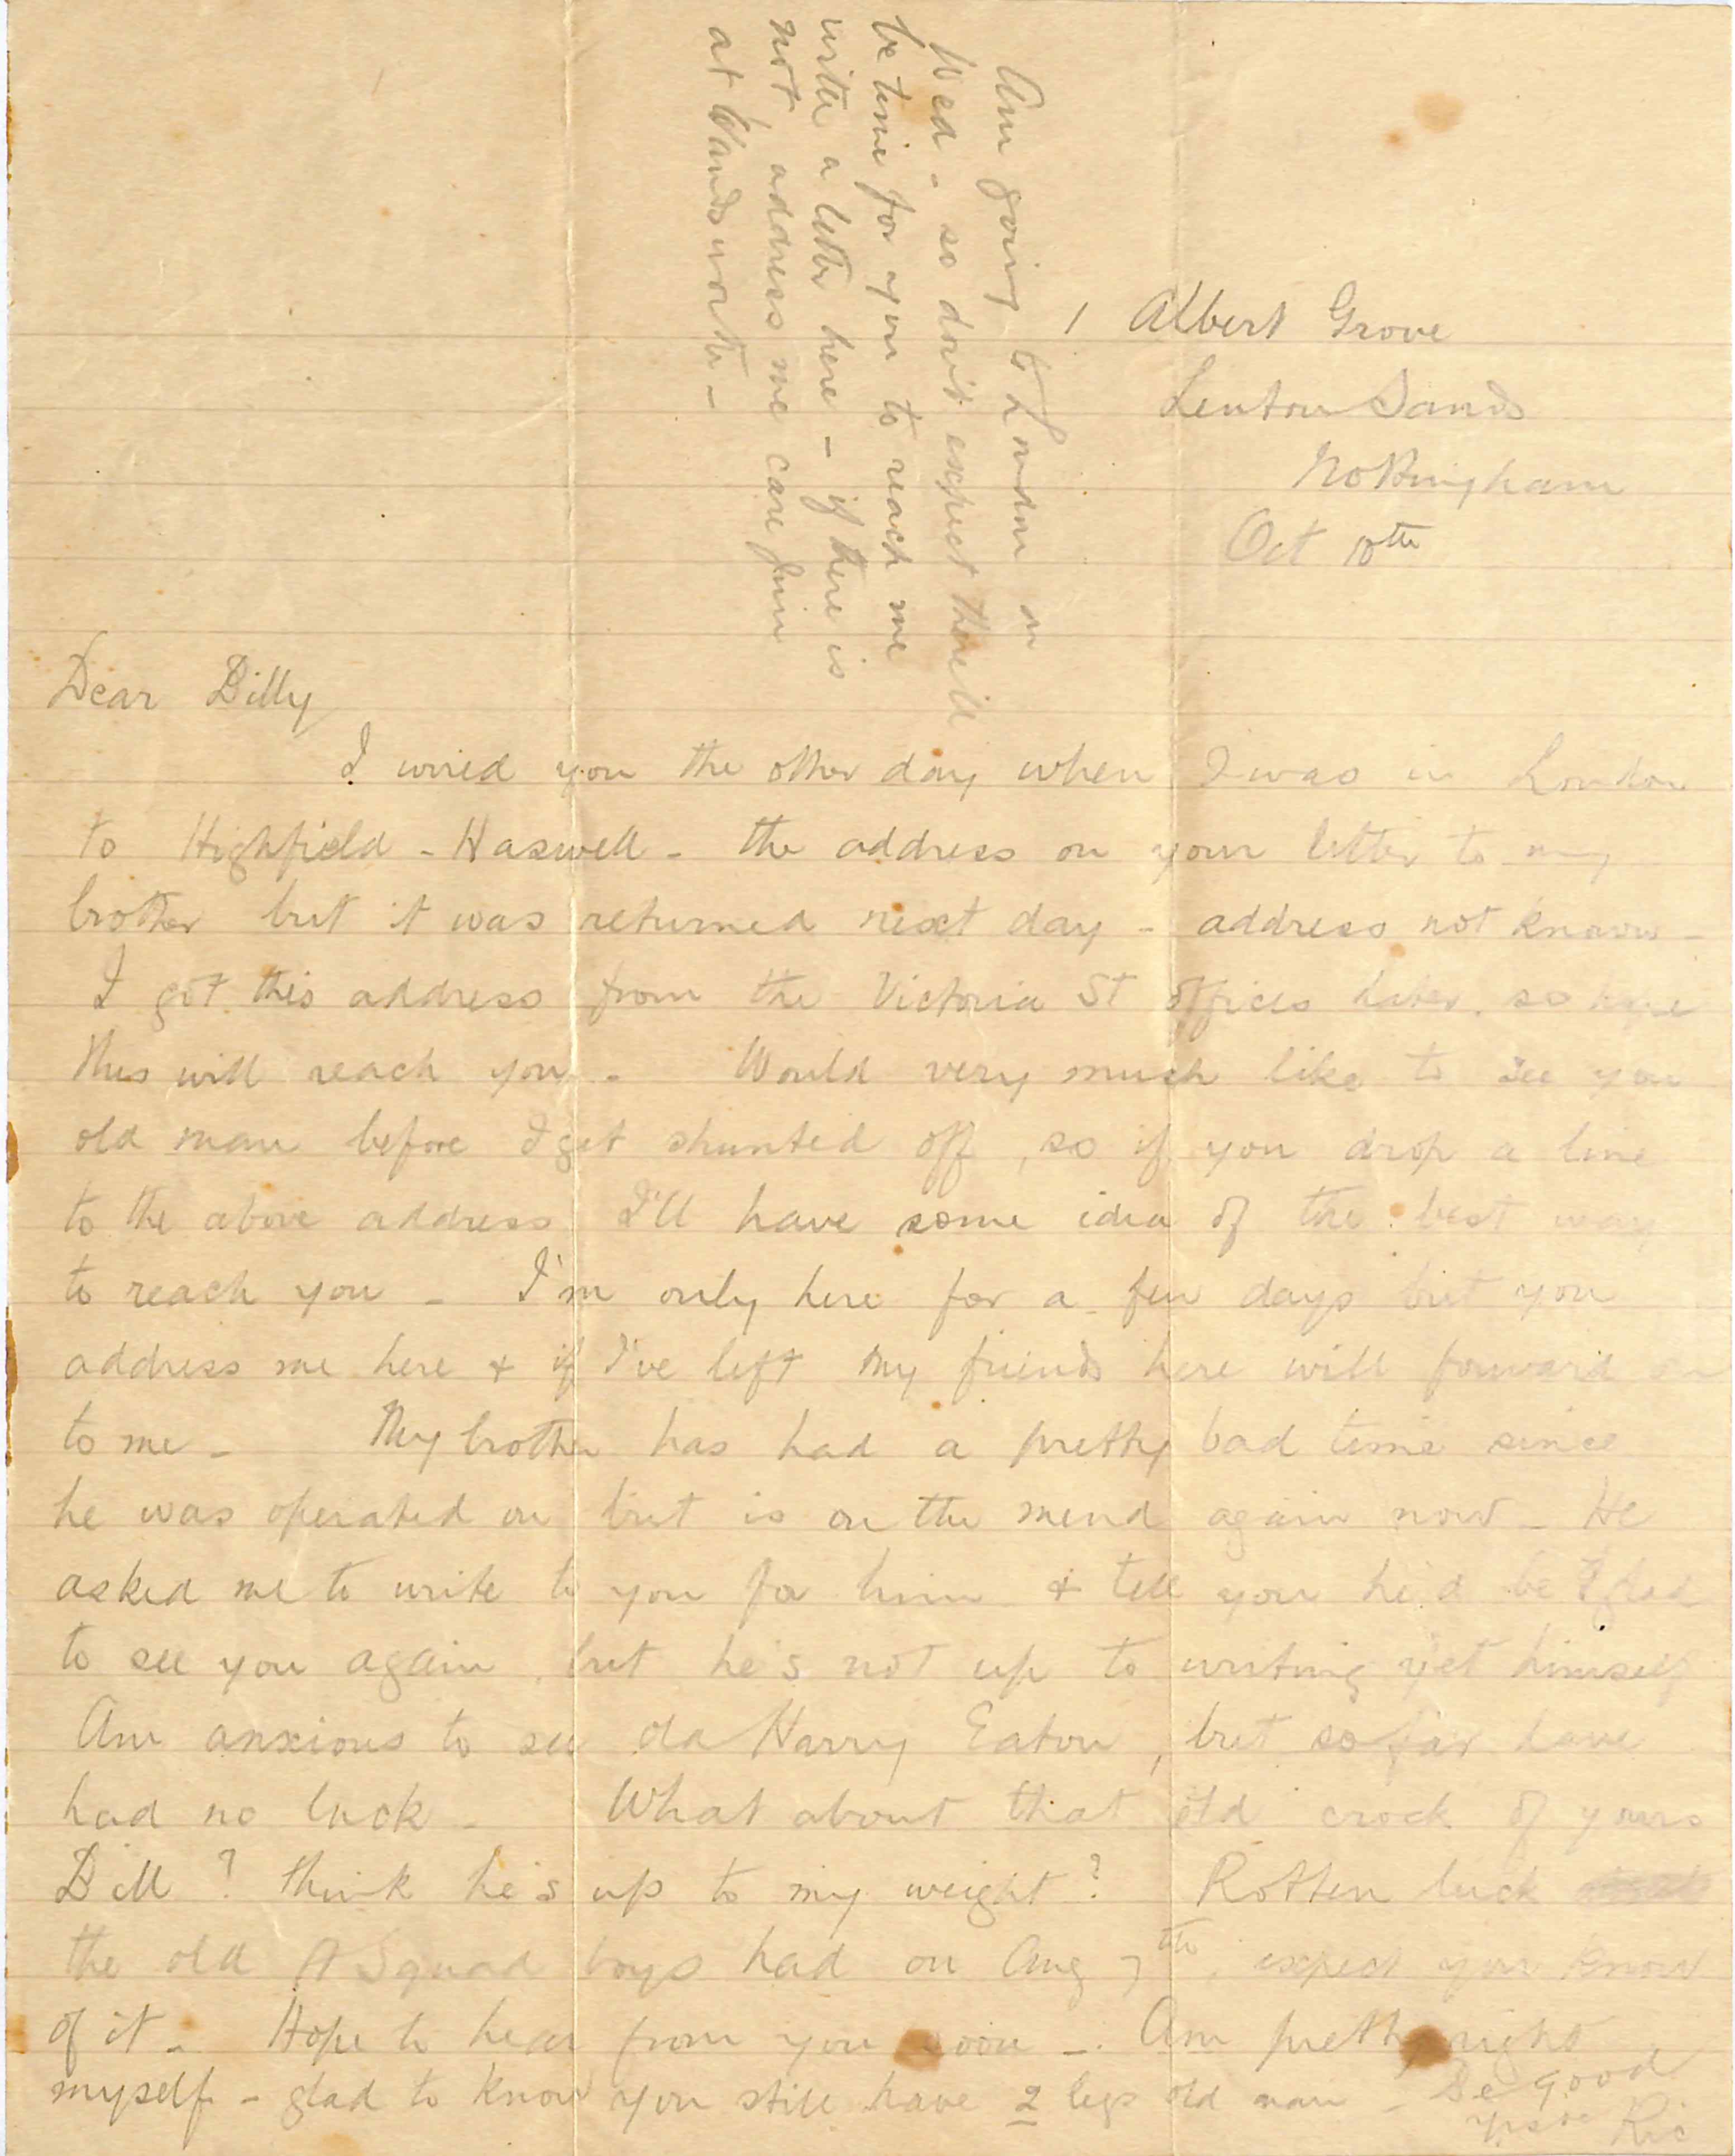 1 Albert Grove
Lenton Sands
Nottingham
Oct 10th
Am going to London on
Wed - so don't expect there'll
be time for you to reach me
with a letter here - if there is
not, address me care Jim
at Wandsworth -
Dear Billy
I wired you the other day when I was in London
to Highfield - Haswell - the address on your letter to my
brother but it was returned next day - address not known -
I got this address from the Victoria St offices later, so hope
this will reach you - Would very much like to see you
old man before I get shunted off, so if you drop a line
to the above address I'll have some idea of the best way
to reach you - I'm only here for a few days but you
address me here & if I've left my friends here will forward on
to me - My brother has had a pretty bad time since
he was operated on but is on the mend again now - He
asked me to write to you for him & tell you he'd be glad
to see you again, but he's not up to writing yet himself
Am anxious to see old Harry Eaton, but so far have
had no luck - What about that old crock of yours
Bill? think he's up to my weight? Rotten luck
the old A Squad boys had on Aug 7th, expect you know
of it - Hope to hear from you soon - Am pretty right
myself - glad to know you still have 2 legs old man - Be good
Ric